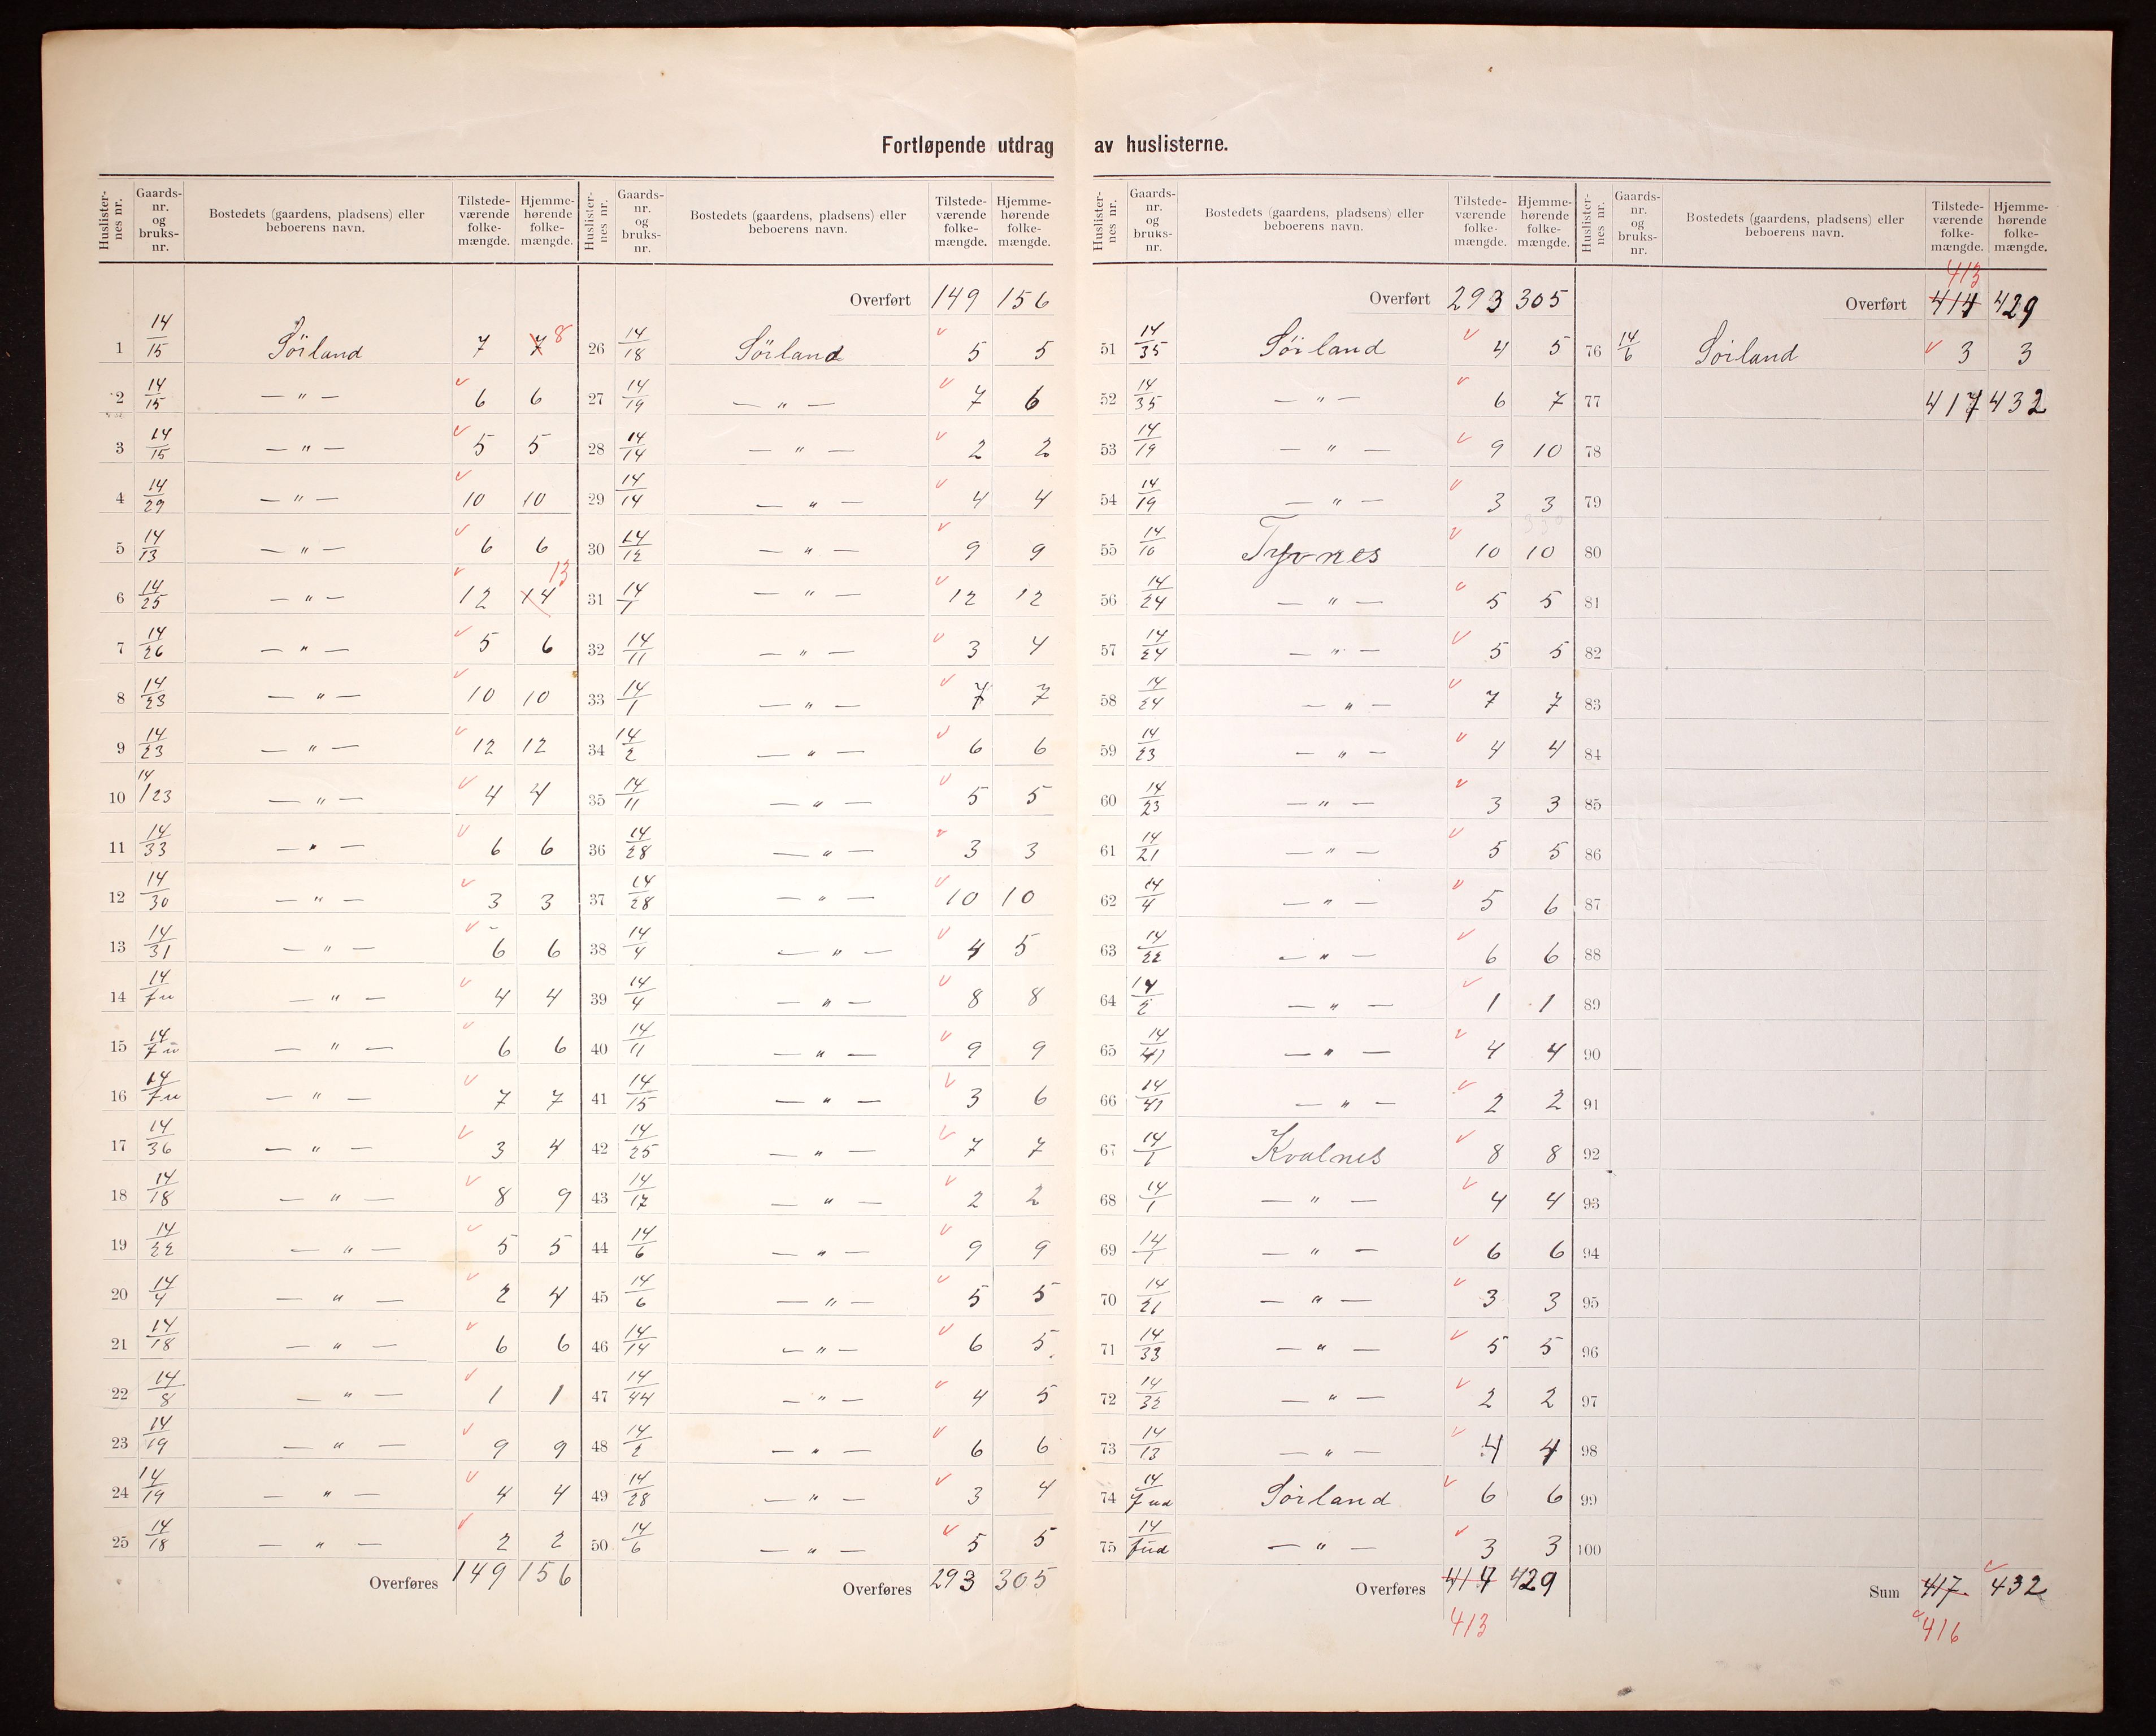 Fortløpende utdrag av huslisterne.
Huslister-nes nr. Gaards-nr. og bruks-nr. Bostedets (gaardens, pladsens) eller beboerens navn. Tilstede-værende folke-mængde. Hjemme-hørende folke-mængde.
1 14/15 Sörland 7 7 8
2 14/15 — " — 6 6
3 14/15 — " — 5 5
4 14/29 — " — 10 10
5 14/13 — " — 6 6
6 14/25 — " — 12 14 13
7 14/26 — " — 5 6
8 14/23 — " — 10 10
9 14/23 — " — 12 12
10 14/123 — " — 4 4
11 14/33 — " — 6 6
12 14/30 — " — 3 3
13 14/31 — " — 6 6
14 14/7u — " — 4 4
15 14/7u — " — 6 6
16 14/7u — " — 7 7
17 14/36 — " — 3 4
18 14/18 — " — 8 9
19 14/22 — " — 5 5
20 14/4 — " — 2 4
21 14/18 — " — 6 6
22 14/8 — " — 1 1
23 14/19 — " — 9 9
24 14/19 — " — 4 4
25 14/18 — " — 2 2
Overføres 149 156
Huslister-nes nr. Gaards-nr. og bruks-nr. Bostedets (gaardens, pladsens) eller beboerens navn. Tilstede-værende folke-mængde. Hjemme-hørende folke-mængde.
Overført 149 156
26 14/18 Sörland 5 5
27 14/19 — " — 7 6
28 14/14 — " — 2 2
29 14/14 — " — 4 4
30 14/12 — " — 9 9
31 14/1 — " — 12 12
32 14/11 — " — 3 4
33 14/1 — " — 7 7
34 14/2 — " — 6 6
35 14/11 — " — 5 5
36 14/28 — " — 3 3
37 14/28 — " — 10 10
38 14/4 — " — 4 5
39 14/4 — " — 8 8
40 14/11 — " — 9 9
41 14/15 — " — 3 6
42 14/25 — " — 7 7
43 14/17 — " — 2 2
44 14/6 — " — 9 9
45 14/6 — " — 5 5
46 14/14 — " — 6 5
47 14/44 — " — 4 5
48 14/2 — " — 6 6
49 14/28 — " — 3 4
50 14/6 — " — 5 5
Overføres 293 305
Huslister-nes nr. Gaards-nr. og bruks-nr. Bostedets (gaardens, pladsens) eller beboerens navn. Tilstede-værende folke-mængde. Hjemme-hørende folke-mængde.
Overført 293 305
51 14/35 Söiland 4 5
52 14/35 — " — 6 7
53 14/19 — " — 9 10
54 14/19 — " — 3 3
55 14/16 Tyvnes 10 10
56 14/24 — " — 5 5
57 14/24 — " — 5 5
58 14/24 — " — 7 7
59 14/23 — " — 4 4
60 14/23 — " — 3 3
61 14/21 — " — 5 5
62 14/4 — " — 5 6
63 14/22 — " — 6 6
64 14/2 — " — 1 1
65 14/41 — " — 4 4
66 14/41 — " — 2 2
67 14/1 Kvalnes 8 8
68 14/1 — " — 4 4
69 14/1 — " — 6 6
70 14/21 — " — 3 3
71 14/33 — " — 5 5
72 14/32 — " — 2 2
73 14/13 — " — 4 4
74 14/7ud Söiland 6 6
75 14/7ud — " — 3 3
Overføres 414 429
413
Huslister-nes nr. Gaards-nr. og bruks-nr. Bostedets (gaardens, pladsens) eller beboerens navn. Tilstede-værende folke-mængde. Hjemme-hørende folke-mængde.
413
Overført 414 429
76 14/6 Söiland 3 3
77 417 432
78
79
80
81
82
83
84
85
86
87
88
89
90
91
92
93
94
95
96
97
98
99
100
Sum 417 432
416